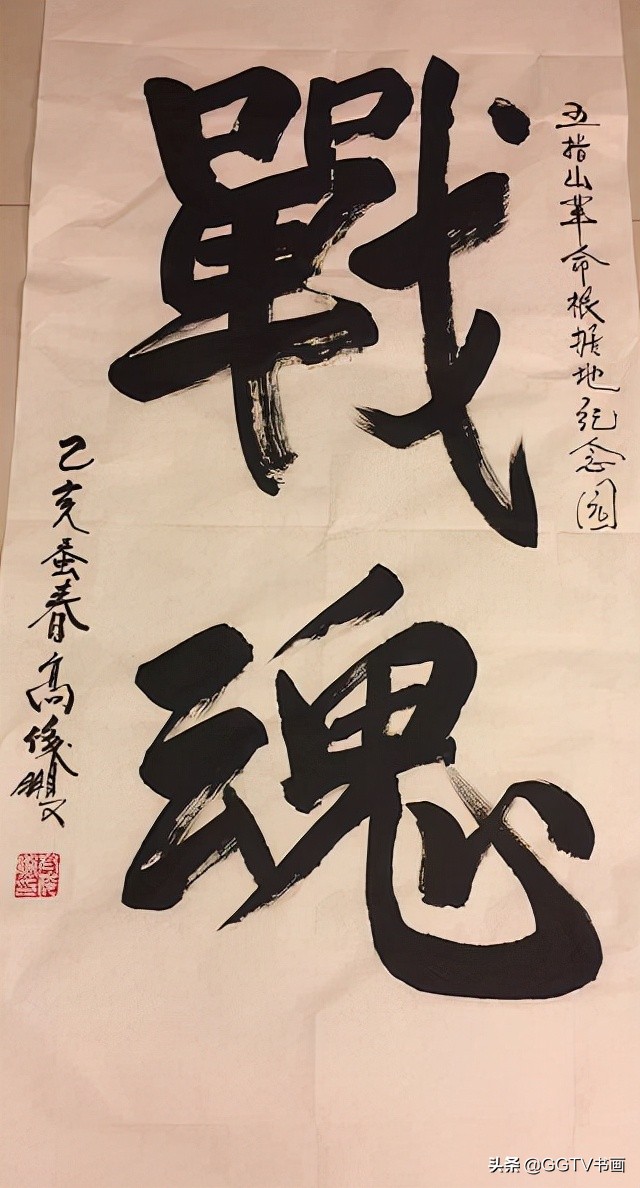 五指山革命根据地纪念园
戰魂
己亥蚤春高
头条 @GGTV书画